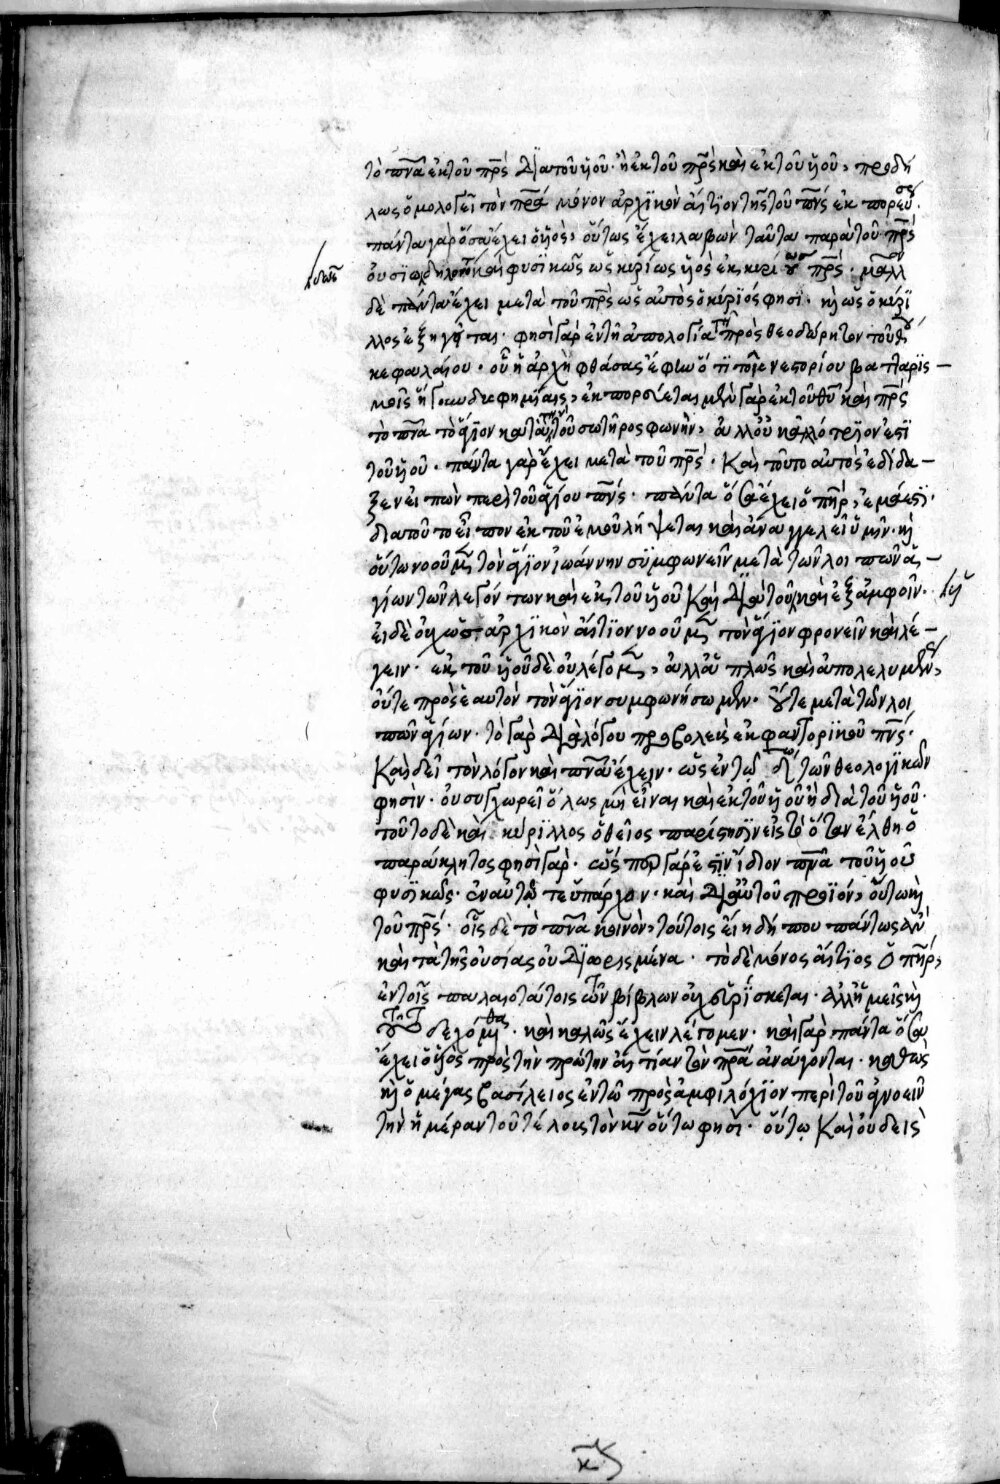 τὸ πνᾶ ἐκ τοῦ πρς διὰ τοῦ ὑοῦ· ἢ ἐκ τοῦ πρς καὶ ἐκ τοῦ ὑοῦ, προδή
λως ὁμολογεῖ τὸν πρα μόνον ἀρχϊκὸν αἴτϊον τῆς τοῦ πνς ἐκπορεύσε
πάντα γὰρ ὅσα ἔχει ὁ ὑὸς, οὕτως ἔχει λαβὼν ταῦτα παρὰ τοῦ πρς
οὐσϊωδ καὶ φυσϊκῶς ὡς κυρίως ὑὸς ἐκ κυρί πρς· μᾶλλ
δὲ πάντα ἔχει μετὰ τοῦ πρς ὡς αὐτὸς ὁ κύρϊός φησϊ· κὴ ὡς ὁ κύρϊ
λλος ἐξηγεῖται· φησὶ γὰρ ἐν τῇ ἀπολογία τῇ πρὸς θεοδώρητον τοῦ θ
κεφαλαίου· οὗ ἡ ἀρχὴ φθάσας ἔφην ὅτϊ τοῖς νεστορίου βαττλαρϊς
μοῖς ἤγουν δυσφημϊαις, ἐκπορεύεται μὲν γὰρ ἐκ τοῦ θυ καὶ πρς
τὸ πνα τὸ ἅγϊον κατὰ τὴν τοῦ σωτῆρος φωνὴν, ἀλλ' οὐκ ἀλλότρϊον ἐστϊ
τοῦ ὑοῦ· πάντα γὰρ ἔχει μετὰ τοῦ πρς· Καὶ τοῦτο αὐτὸς ἐδίδα
ξεν εἰπὼν περὶ τοῦ ἁγίου πνς· πάντα ὅσα ἔχει ὁ πηρ, ἐμά ἐστϊ·
διατοῦτο εἶπον ἐκ τοῦ ἐμοῦ λήψεται καὶ ἀναγγελεῖ ὑμῖν· κὴ
οὕτω νοοῦμ τὸν ἅγϊον ἰωάννην συμφωνεῖν μετὰ τῶν λοιπῶν ἁ
γίων τῶν λεγόντων καὶ ἐκ τοῦ ὑοῦ Καὶ διὰ τοῦ καὶ ἐξ ἀμφοῖν·
εἰ δὲ οὐχ ὡς ἀρχϊκὸν αἴτϊον νοοῦμ τὸν ἅγϊον φρονεῖν καὶ λέ
γειν· ἐκ τοῦ ὑοῦ δὲ οὐ λέγομ, ἀλλ' ἁπλῶς καὶ ἀπολελυμένως,
οὔτε πρὸς ἑαυτὸν τὸν ἅγϊον συμφωνήσωμεν· οὔτε μετὰ τῶν λοι
πῶν ἁγίων· τὸ γὰρ διὰ λόγου προβολεὺς ἐκφαντορϊκοῦ πνς·
Καὶ δεῖ τὸν λόγον καὶ πνα ἔχειν· ὡς ἐν τῷ τῶν θεολογϊκῶν
φησὶν· οὐ συγχωρεῖ ὅλως μὴ εἶναι καὶ ἐκ τοῦ ὑοῦ ἢ διὰ τοῦ ὑοῦ·
τοῦτο δὲ καὶ κύρϊλλος ὁ θεῖος παρίστησϊν εἰς τὸ ὅταν ἔλθη ὁ
παράκλητος φησὶ γὰρ· ὥσπερ γάρ ἐστϊν ἴδιον πνα τοῦ ὑοῦ
φυσϊκῶς· ἐν αὐτῷ τε ὑπάρχον· καὶ δι' αὐτοῦ προϊόν, οὕτω κὴ
τοῦ πρς· οἷς δὲ τὸ πνα κοινὸν, τούτοις εἴη δή που πάντως ἂν
καὶ τὰ τῆς οὐσίας οὐ διωρισμένα· τὸ δὲ μόνος αἴτϊος ὁ πηρ,
ἐν τοῖς παλαιοτάτοις τῶν βίβλων οὐχ εὑρίσκεται· ἀλλ' ἡμεῖς κὴ
τοῦτο δεχόμεθα· καὶ καλῶς ἔχειν λέγομεν· καὶ γὰρ πάντα ὅσα
ἔχει ὁ ὑὸς πρὸς τὴν πρώτην αἰτίαν τὸν πρα ἀνάγονται· καθὼς
κὴ ὁ μέγας βασίλειος ἐν τῶ πρὸς ἀμφιλόχϊον περὶ τοῦ ἀγνοεῖν
τὴν ἡμέραν τοῦ τέλους τὸν κν οὕτω φησὶ· οὕτω Καὶ οὐδεὶς